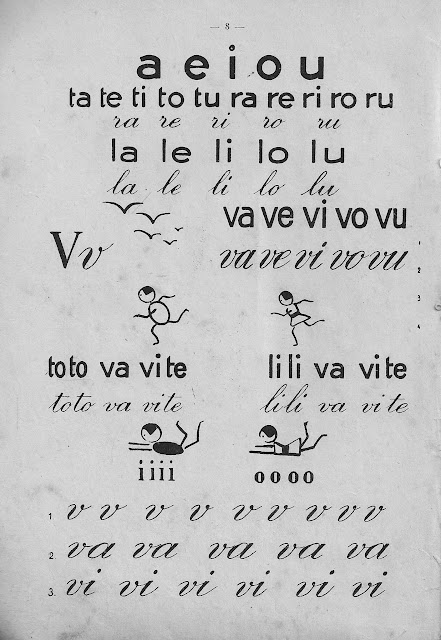 — 8 —
a e i o u
ta te ti to tu ra re ri ro ru
ra re ri ro ru
la le li lo lu
la le li lo lu
va ve vi vo vu
V v
va ve vi vo vu
toto va vite lili va vite
toto va vite lili va vite
i i i i o o o o
1 v v v v v v v v v
2. va va va va va va
3. vi vi vi vi vi vi